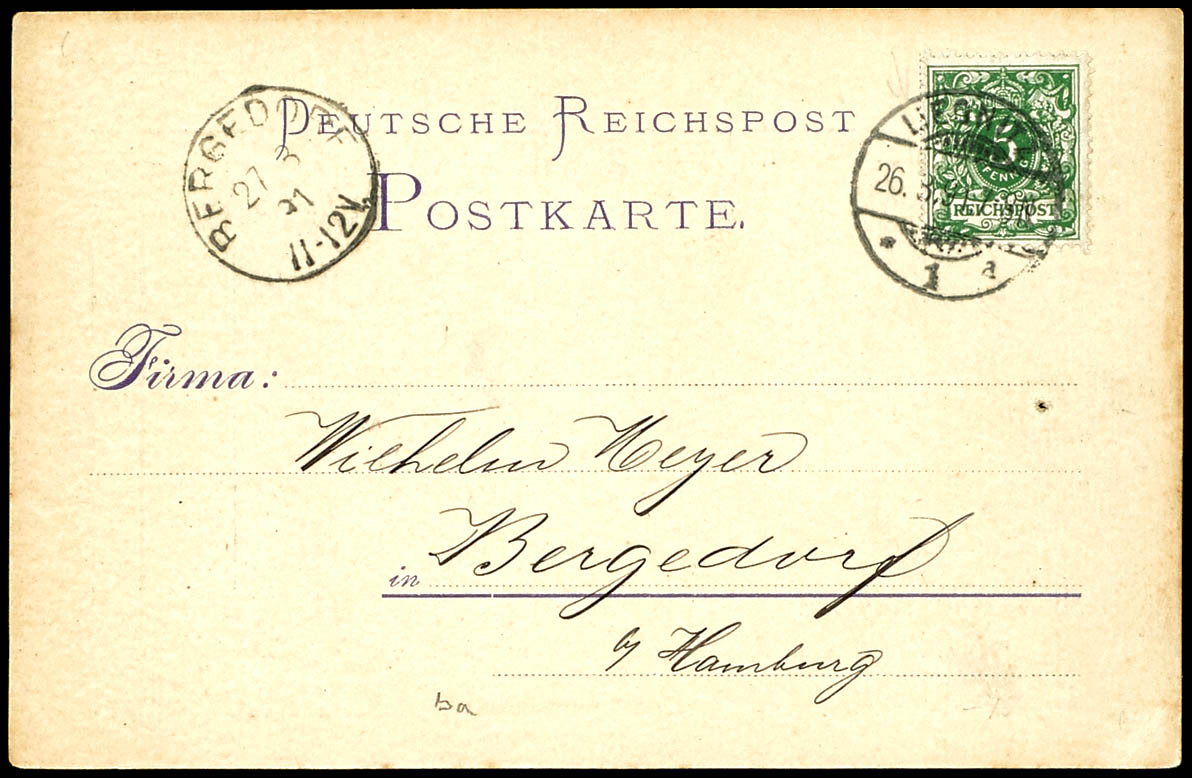 DEUTSCHE REICHSPOST
POSTKARTE.
BERGEDORF
27 3
91
11-12V.
26. 3. 91
1 a
5
PFENNIG
REICHSPOST
Firma:
Wilhelm Meyer
in Bergedorf
b/ Hamburg